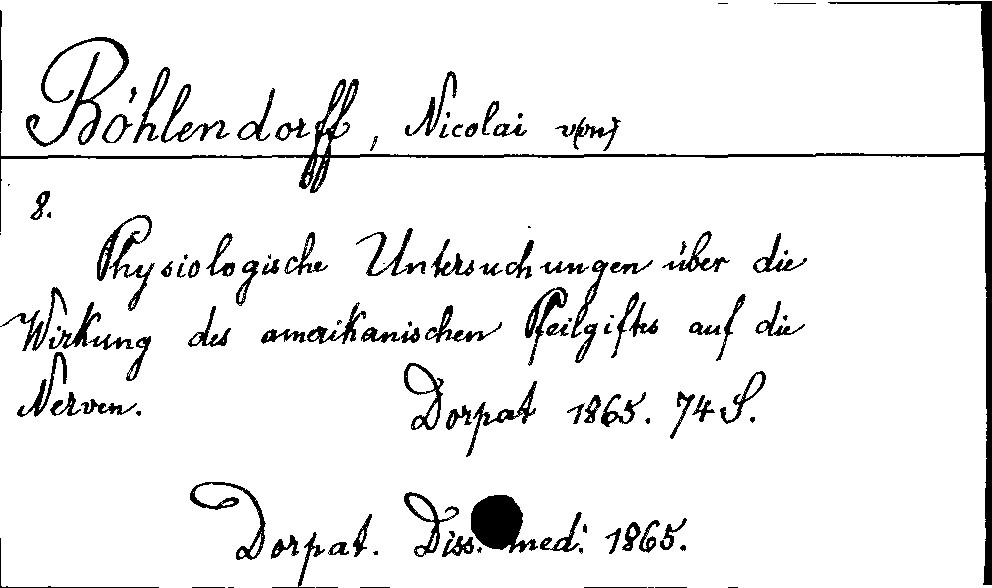 Böhlendorff, Nicolai v(on)
8.
Physiologische Untersuchungen über die
Wirkung des amerikanischen Pfeilgiftes auf die
Nerven. Dorpat 1865. 74 S.
Dorpat. Diss. med. 1865.